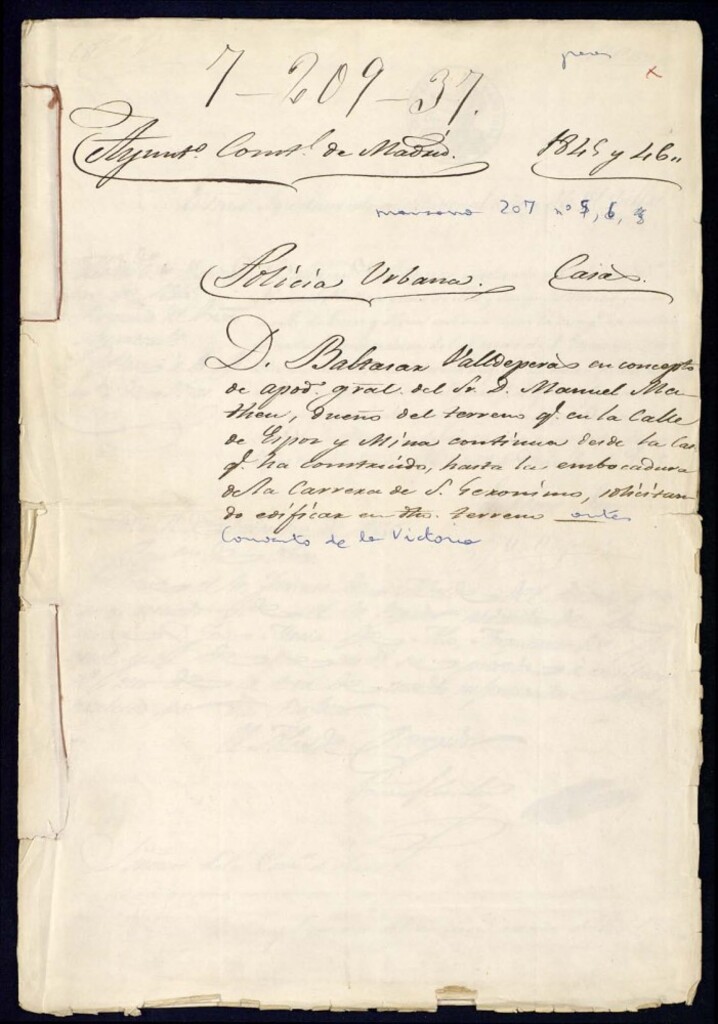 7-209-37.
Ayunto. Constl. de Madrid. 1845 y 46
manzana 207 nº 5, 6,
Policía Urbana. Casas.
D. Baltasar Valldeperas en concepto
de apodº. gral. del Sr. D. Manuel Ma-
theu, dueño del terreno q. en la Calle
de Espoz y Mina continua desde la Casa
q. ha construido, hasta la embocadura
de la Carrera de S. Geronimo, solicitan-
do edificar en dho. terreno antes
Convento de la Victoria